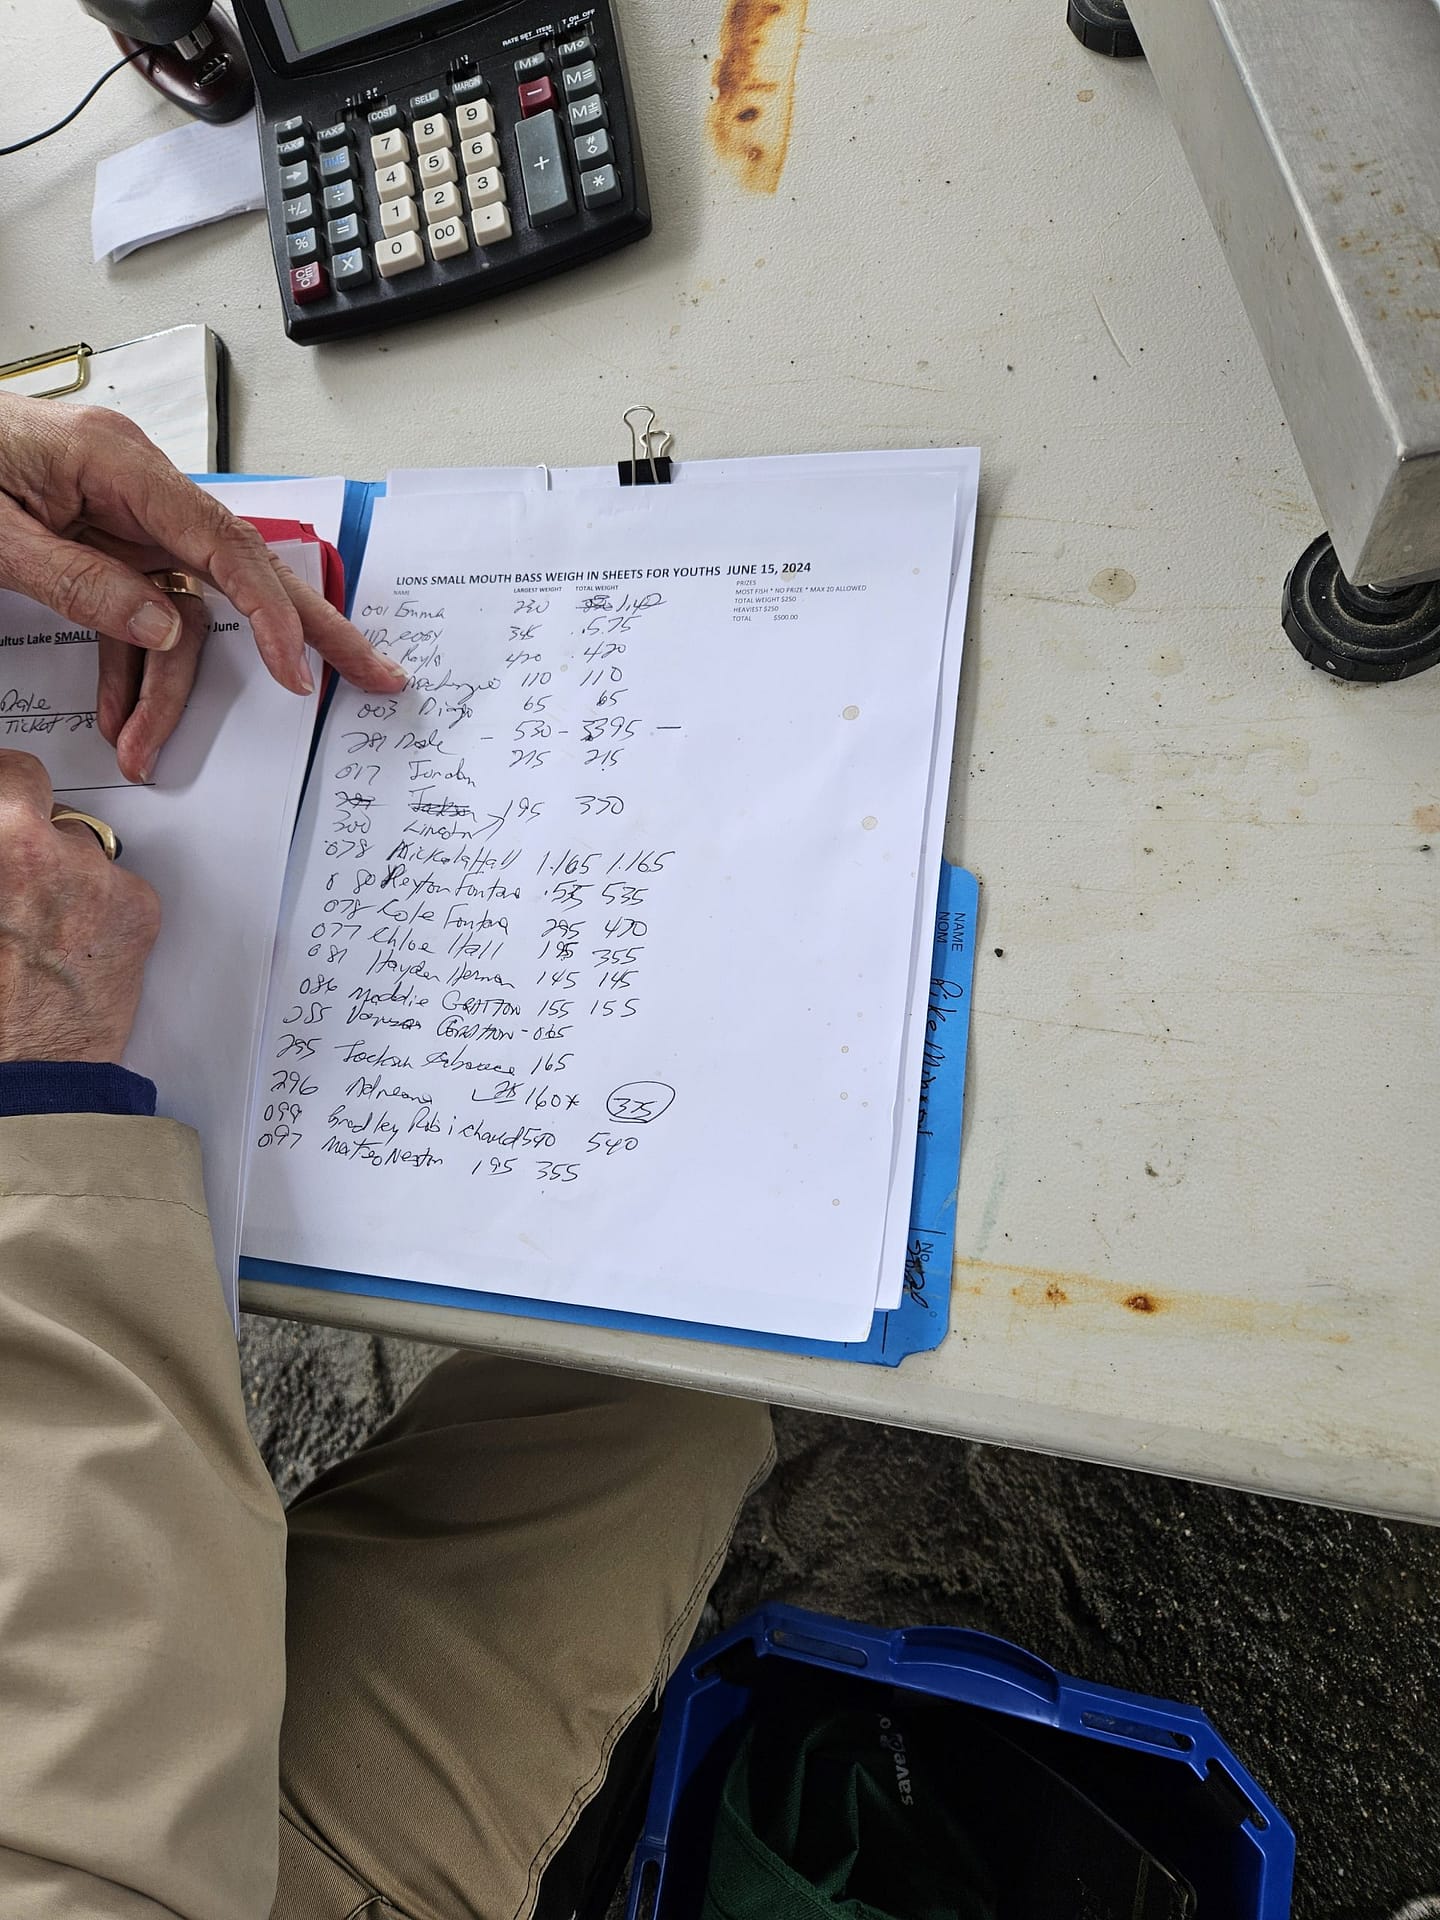 RATE SET ITEM T ON OFF
COST SELL MARGIN
M* M◇
TAX- 7 8 9 − M=
TAX+ TIME 4 5 6 M±
→ ÷ 1 2 3 + # ◇
+/- = 0 00 . *
% X
CE/C
LIONS SMALL MOUTH BASS WEIGH IN SHEETS FOR YOUTHS JUNE 15, 2024
NAME LARGEST WEIGHT TOTAL WEIGHT
PRIZES
MOST FISH * NO PRIZE * MAX 20 ALLOWED
TOTAL WEIGHT $250
HEAVIEST $250
TOTAL $500.00
001 Emma 230 1.140
345 .575
420 .420
110 110
003 Diego 65 65
281 Dale - 530 - 3395 —
017 Jordan 215 215
300 Lincoln 195 330
078 Nickola Hall 1.165 1.165
080 Peyton Fontana .535 535
078 Cole Fontana 295 470
077 Chloe Hall 195 355
081 Hayden Herman 145 145
086 Maddie GRATTON 155 155
285 GRATTON - 065
295 Jackson 165
296 Adreana 160* 375
099 Bradley Robichaud 540 540
097 Mateo Neston 195 355
ultus Lake SMALL June
Dale
Ticket 28
NAME
NOM
NO.
saveon